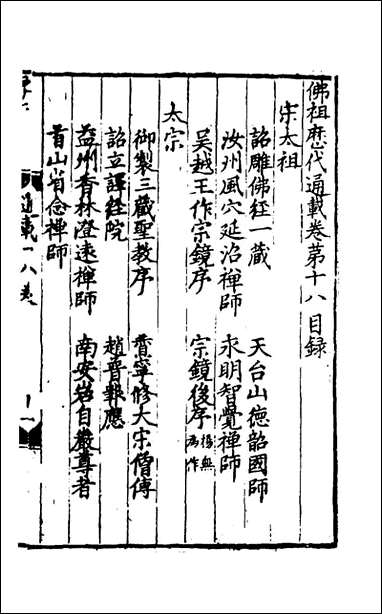 佛祖歷代通載卷第十八目録
宋太祖
詔雕佛經一藏　天台山德韶國師
汝州風穴延沼禪師　永明智覺禪師
吳越王作宗鏡序　宗鏡後序楊無為作
太宗
御製三藏聖教序　賛寧修大宋僧傳
詔立譯經院　趙晋報應
益州香林澄遠禪師　南安岩自嚴尊者
首山省念禪師
通載十八卷